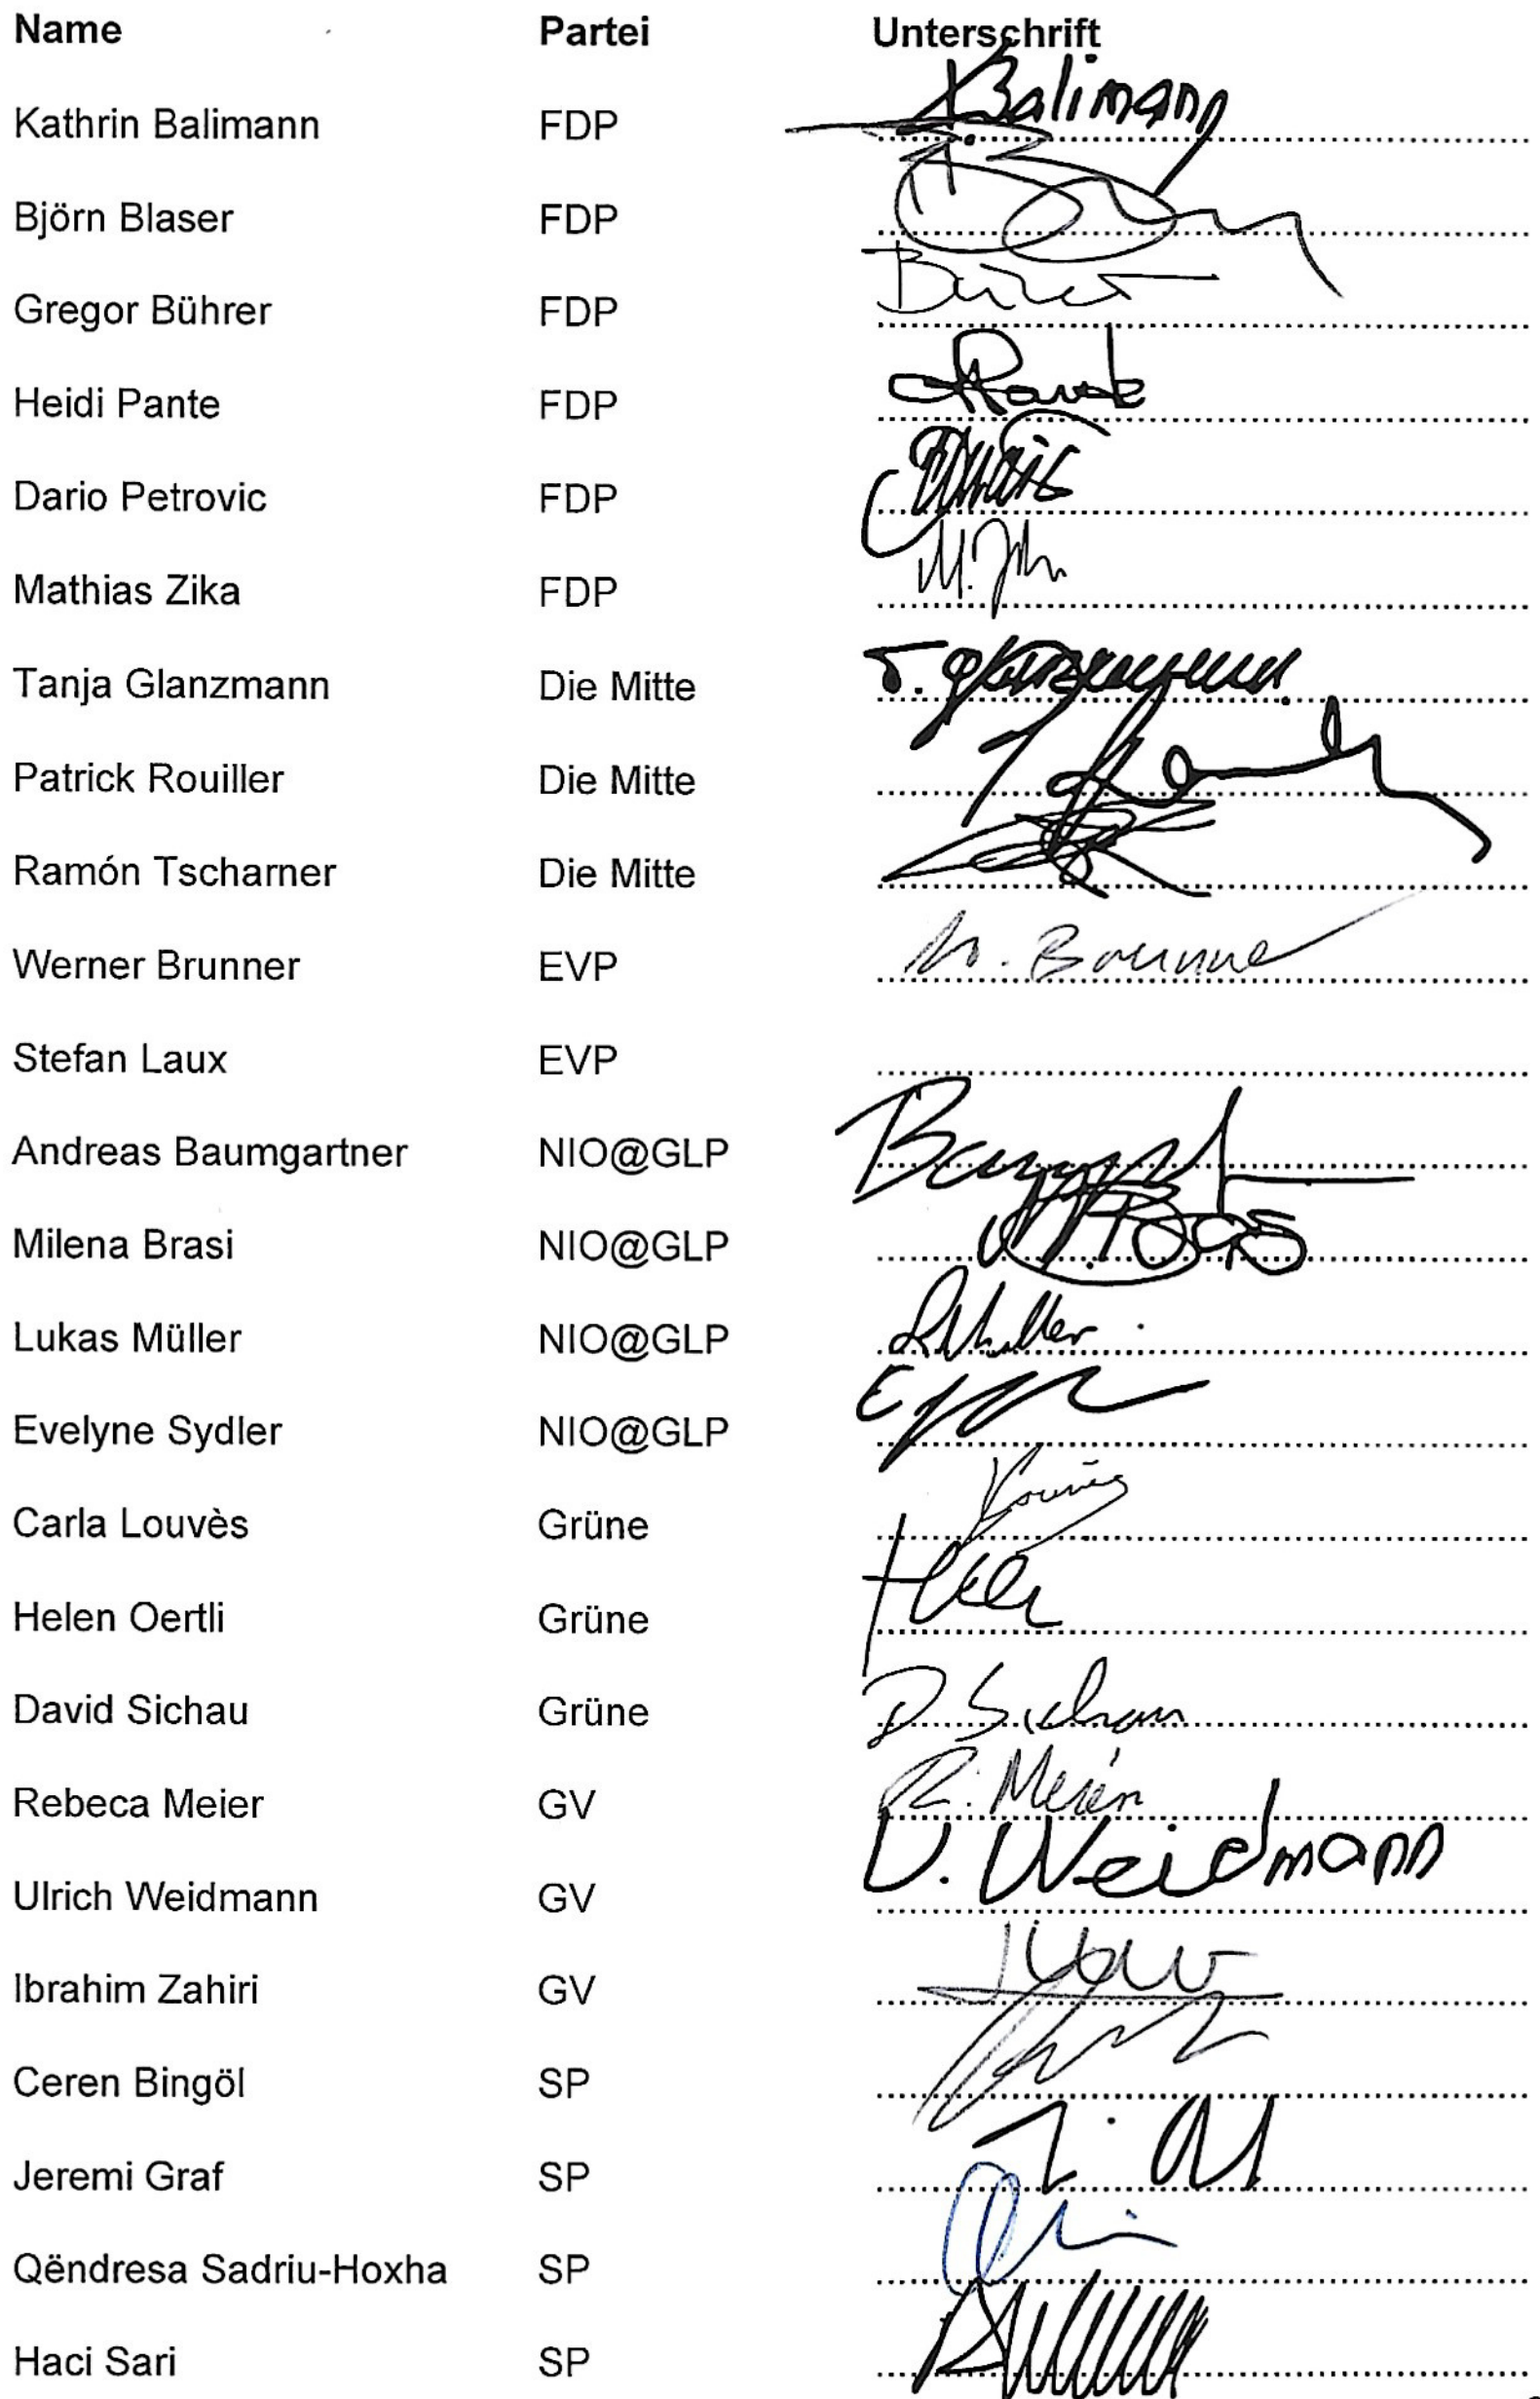 Name Partei Unterschrift
Kathrin Balimann FDP KBalimann
Björn Blaser FDP
Gregor Bührer FDP
Heidi Pante FDP HPante
Dario Petrovic FDP
Mathias Zika FDP
Tanja Glanzmann Die Mitte T. Glanzmann
Patrick Rouiller Die Mitte
Ramón Tscharner Die Mitte
Werner Brunner EVP W. Brunner
Stefan Laux EVP
Andreas Baumgartner NIO@GLP
Milena Brasi NIO@GLP
Lukas Müller NIO@GLP LMüller
Evelyne Sydler NIO@GLP
Carla Louvès Grüne
Helen Oertli Grüne
David Sichau Grüne D. Sichau
Rebeca Meier GV R. Meier
Ulrich Weidmann GV U. Weidmann
Ibrahim Zahiri GV
Ceren Bingöl SP
Jeremi Graf SP
Qëndresa Sadriu-Hoxha SP
Haci Sari SP